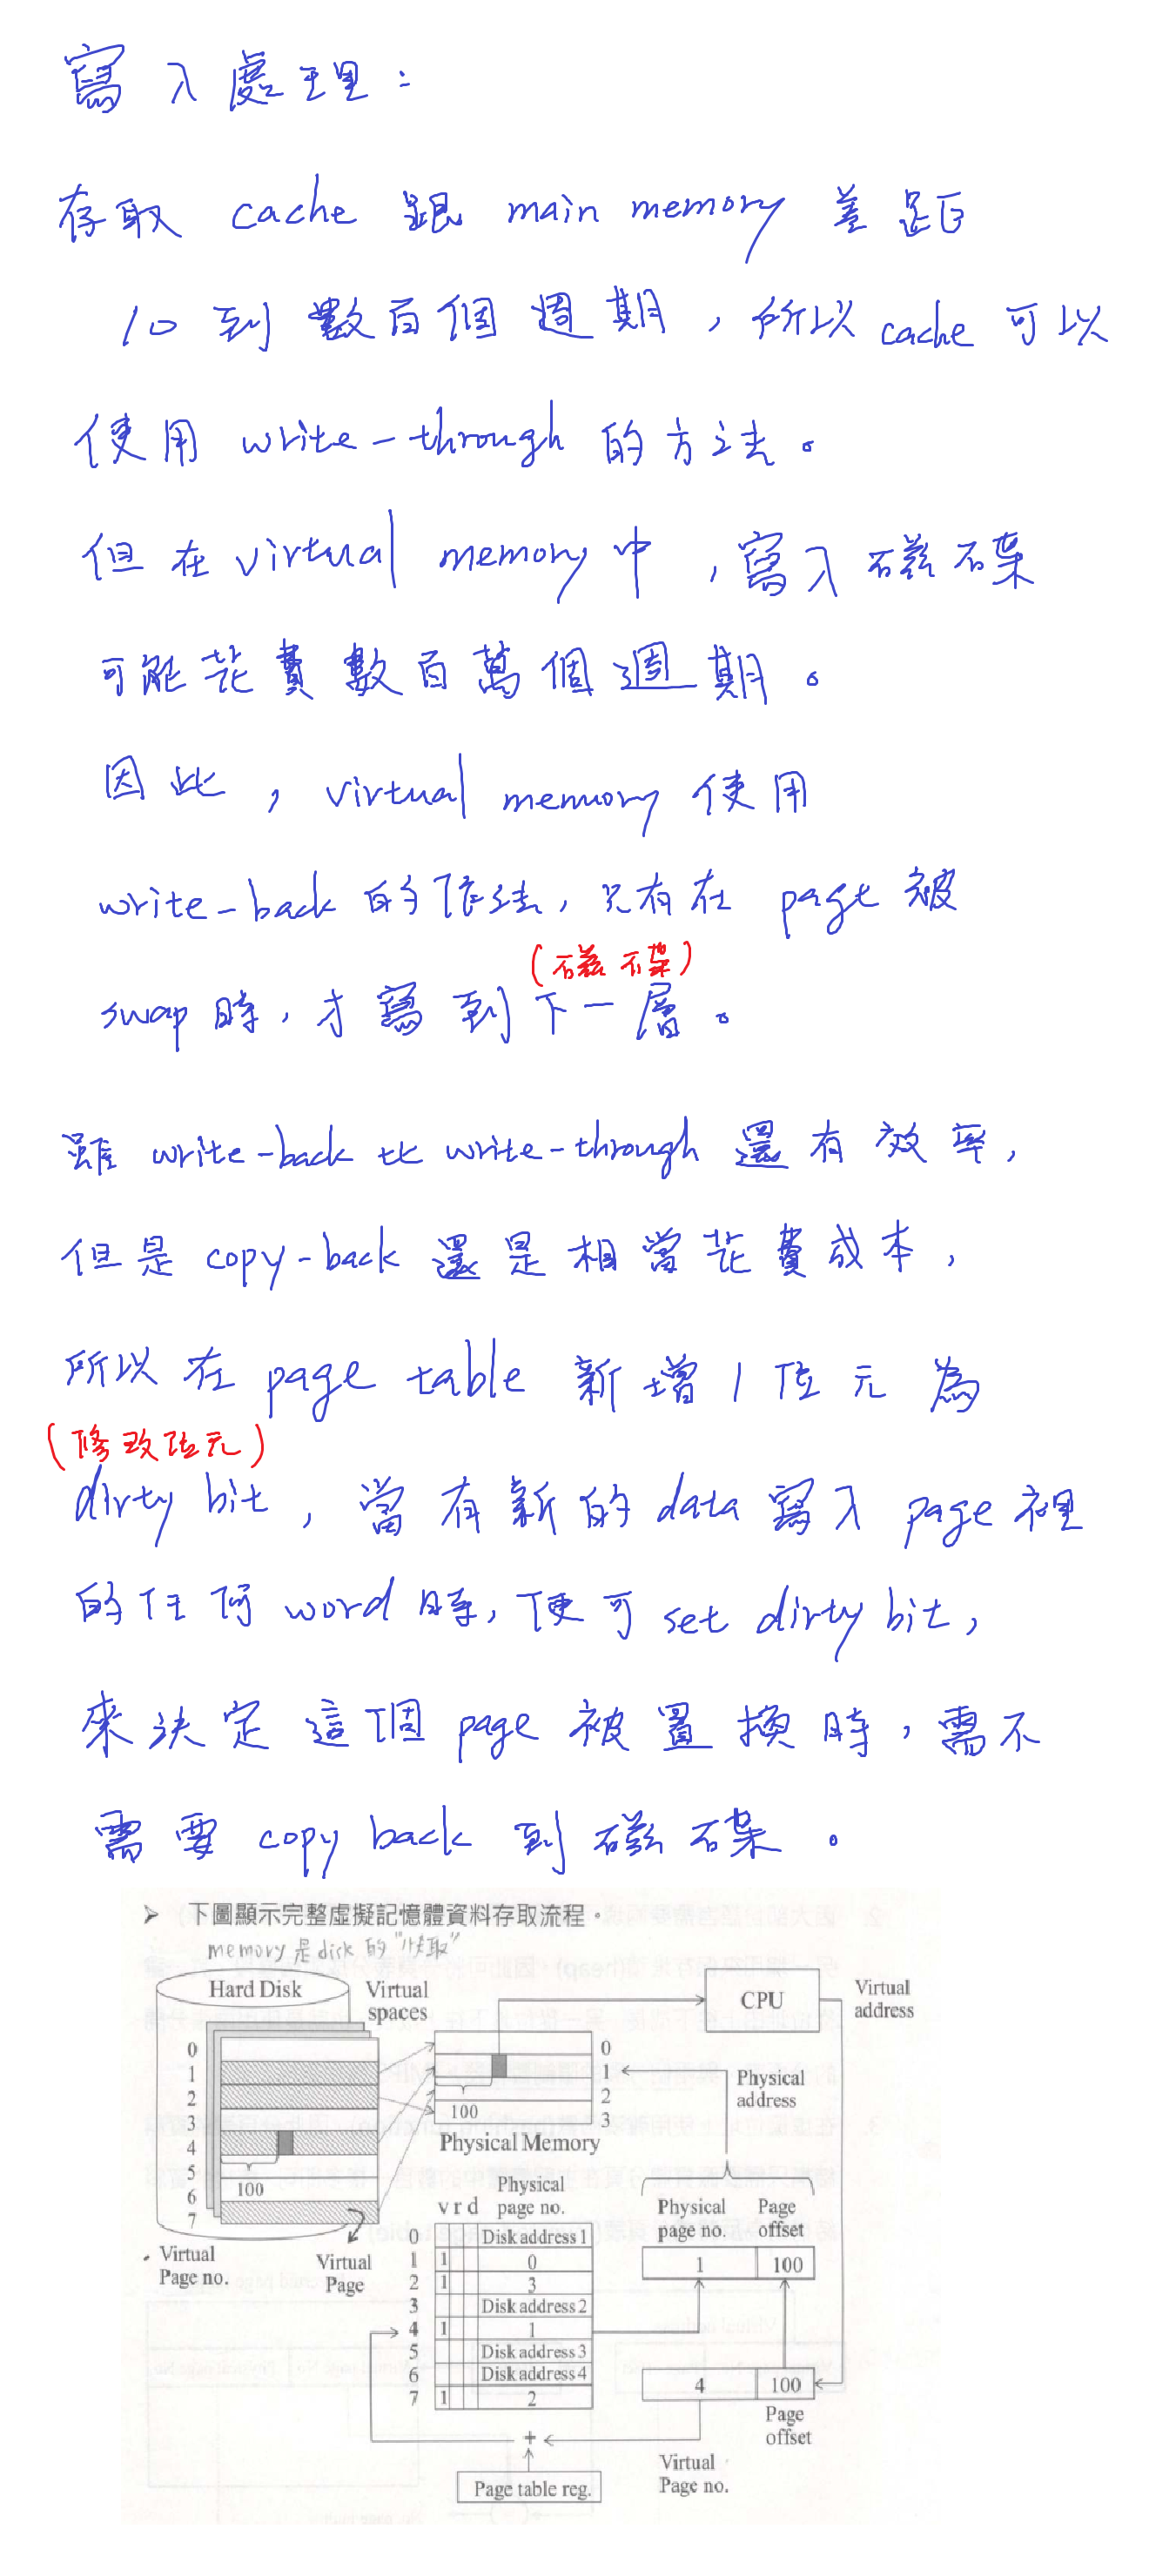 寫入處理：
存取 cache 跟 main memory 差距
10 到數百個週期，所以 cache 可以
使用 write-through 的方法。
但在 virtual memory 中，寫入磁碟
可能花費數百萬個週期。
因此，virtual memory 使用
write-back 的作法，只有在 page 被
(磁碟)
swap 時，才寫到下一層。
雖 write-back 比 write-through 還有效率，
但是 copy-back 還是相當花費成本，
所以在 page table 新增 1 位元為
(修改位元)
dirty bit，當有新的 data 寫入 page 裡
的任何 word 時，便可 set dirty bit，
來決定這個 page 被置換時，需不
需要 copy back 到磁碟。
➢ 下圖顯示完整虛擬記憶體資料存取流程。
memory 是 disk 的 "快取"
Hard Disk
Virtual
spaces
CPU
Virtual
address
0
1
2
3
4
5
6
7
100
Virtual
Page no.
Virtual
Page
0
1
2
3
100
Physical Memory
Physical
address
v r d
Physical
page no.
0 Disk address 1
1 1 0
2 1 3
3 Disk address 2
4 1 1
5 Disk address 3
6 Disk address 4
7 1 2
Physical
page no.
Page
offset
1 100
4 100
Page
offset
+
Virtual
Page no.
Page table reg.